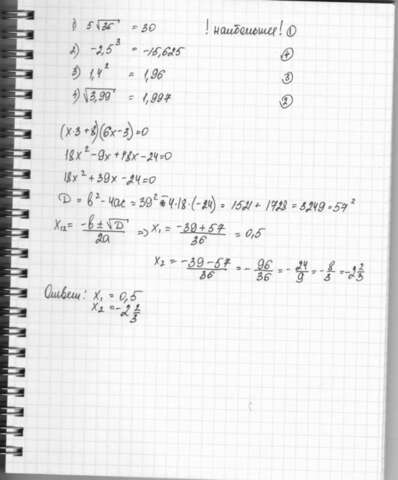 1) 5√36 = 30 ! наибольшее! ①
2) -2,5³ = -15,625 ④
3) 1,4² = 1,96 ③
4) √3,99 = 1,997 ②
(x·3+8)(6x-3)=0
18x² -9x+48x-24=0
18x² +39x -24=0
D = b²-4ac = 39² - 4·18·(-24) = 1521 + 1728 = 3249 = 57²
x₁,₂ = (-b ± √D)/2a => x₁ = (-39+57)/36 = 0,5
x₂ = (-39-57)/36 = -96/36 = -24/9 = -8/3 = -2 2/3
Ответ: x₁ = 0,5
x₂ = -2 2/3